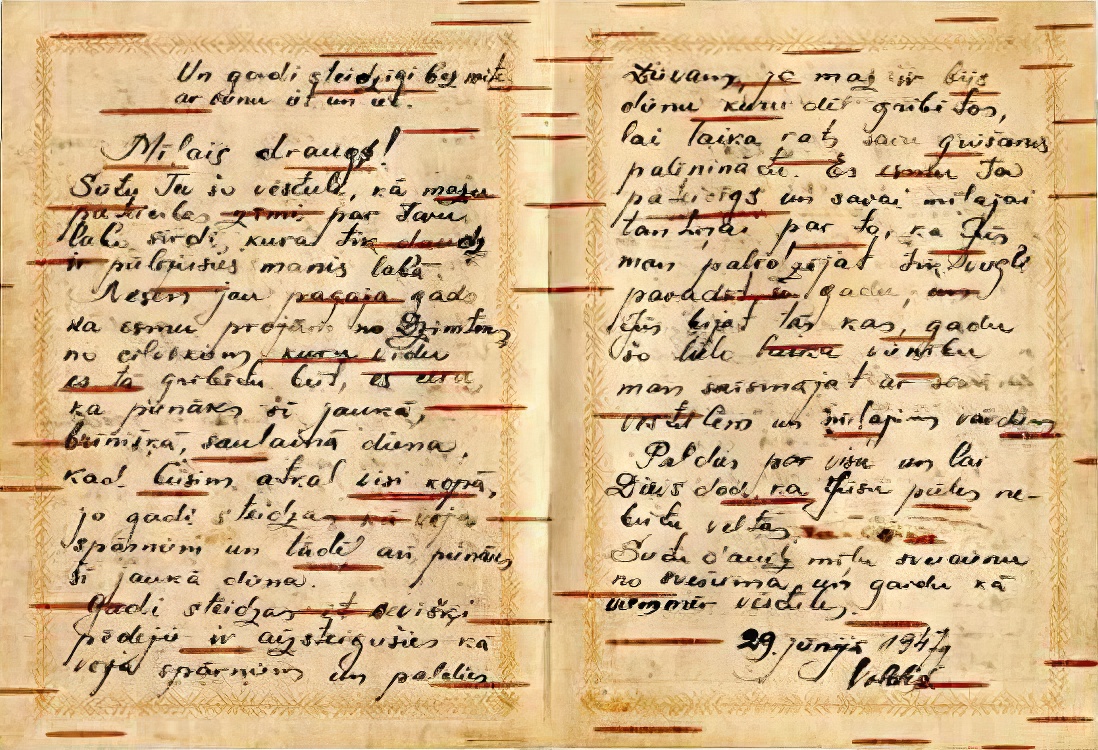 Un gadi steidzīgi bez mitas
ar vienu iet un iet.
Mīļais draugs!
Sūtu Tev šo vēstuli, kā mazu
pateicības zīmi par Tavu
labo sirdi, kura tik daudz
ir pūlējusies manis labā.
Nesen jau pagāja gads
ka esmu projām no Dzimtenes
no cilvēkiem, kuru vidū
es tā gribētu būt, es ceru
ka pienāks šī jaukā,
brīnišķā, saulainā diena,
kad būsim atkal visi kopā,
jo gadi steidzas kā vēja
spārniem un tādēļ arī pienāks
šī jaukā diena.
Gadi steidzas it sevišķi
pēdējie ir aizsteigušies kā
vēja spārniem un paldies
Dievam, jo maz ir bijis
dienu kuru dēļ gribētos,
lai laika rats savu griešanos
palēninātu. Es esmu Tev
pateicīgs un savai mīļajai
tantiņai par to, ka Jūs
man palīdzējāt tik viegli
pavadīt šo gadu,
Jūs bijāt tās kas, gadu
šo lielo laika vienību
man saīsinājāt ar savām
vēstulēm un mīļajiem vārdiem
Paldies par visu un lai
Dievs dod, ka Jūsu pūles ne-
būtu veltas.
Sūtu daudz mīļu sveicienu
no svešuma, un gaidu kā
vienmēr vēstules.
29. jūnijā 1947g